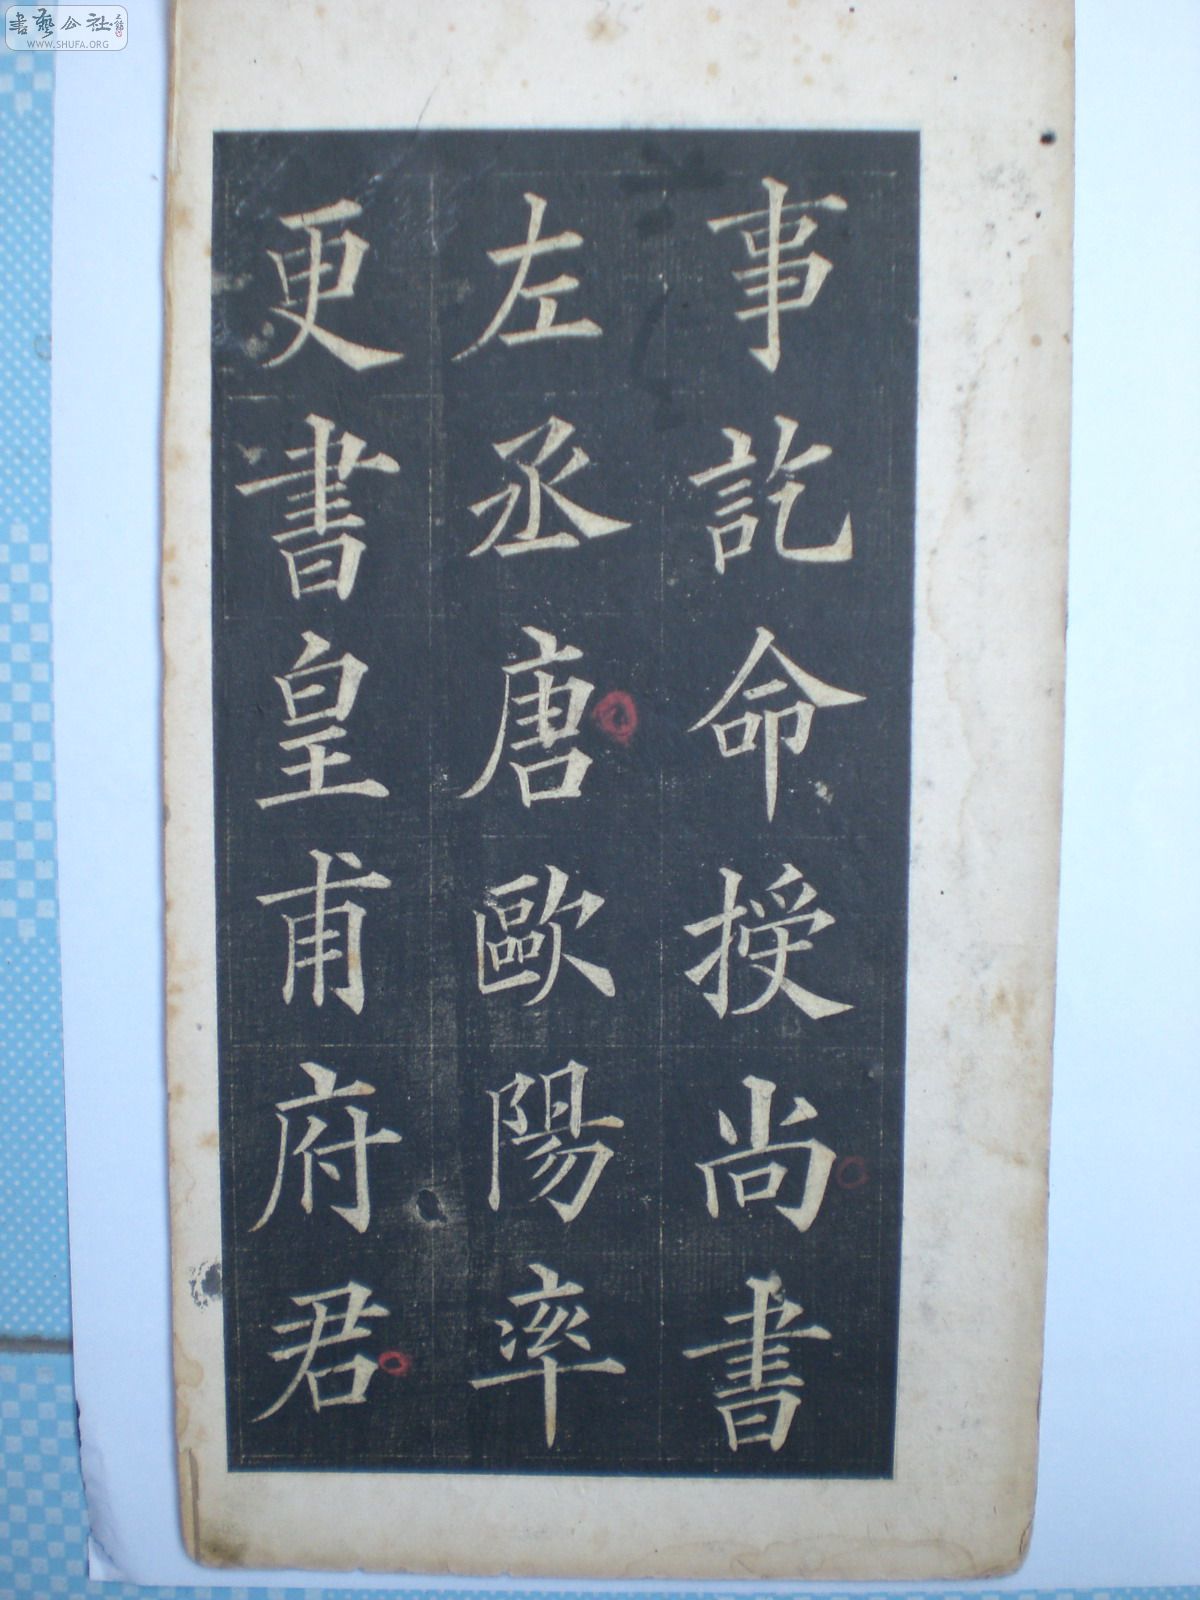 事訖命授尚書
左丞唐歐陽率
更書皇甫府君
書藝公社
WWW.SHUFA.ORG